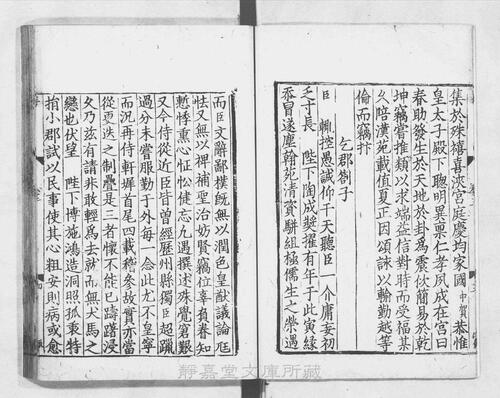 集於殊禧喜浹宮庭慶均家國中賀恭惟
皇太子殿下聰明異稟仁孝夙成在宮曰
春助發生於天地於卦為震佽簡易於乾
坤竊嘗推類以求端益信對時而受福某
久陪漢苑載值夏正因頌詠以輸勤越等
倫而竊抃
乞郡劄子
臣輒控愚誠仰干天聽臣一介庸妄初
乏寸長陛下陶成奬擢有年于此寅緣
忝冒遂塵翰苑清資騈組極儒生之榮遇
而臣文辭鄙樸旣無以潤色皇猷議論尫
怯又無以裨補聖治妨賢竊位辜負眷知
慙悸熏心怔忪健忘九遇撰述殊覺寛艱
又今侍從近臣皆曾經歷州縣獨臣超躐
過分未嘗服勤于外每一念此尤不皇寧
而況再侍軒墀首尾四載稽參故實亦當
從更迭之制疊是三者懷不能已躊躇浸
久乃兹有請非敢輕爲去就而無犬馬之
戀也伏望陛下博施鴻造洞照孤衷特
捐小郡試以民事使其心粗安則病或愈
靜嘉堂文庫所藏